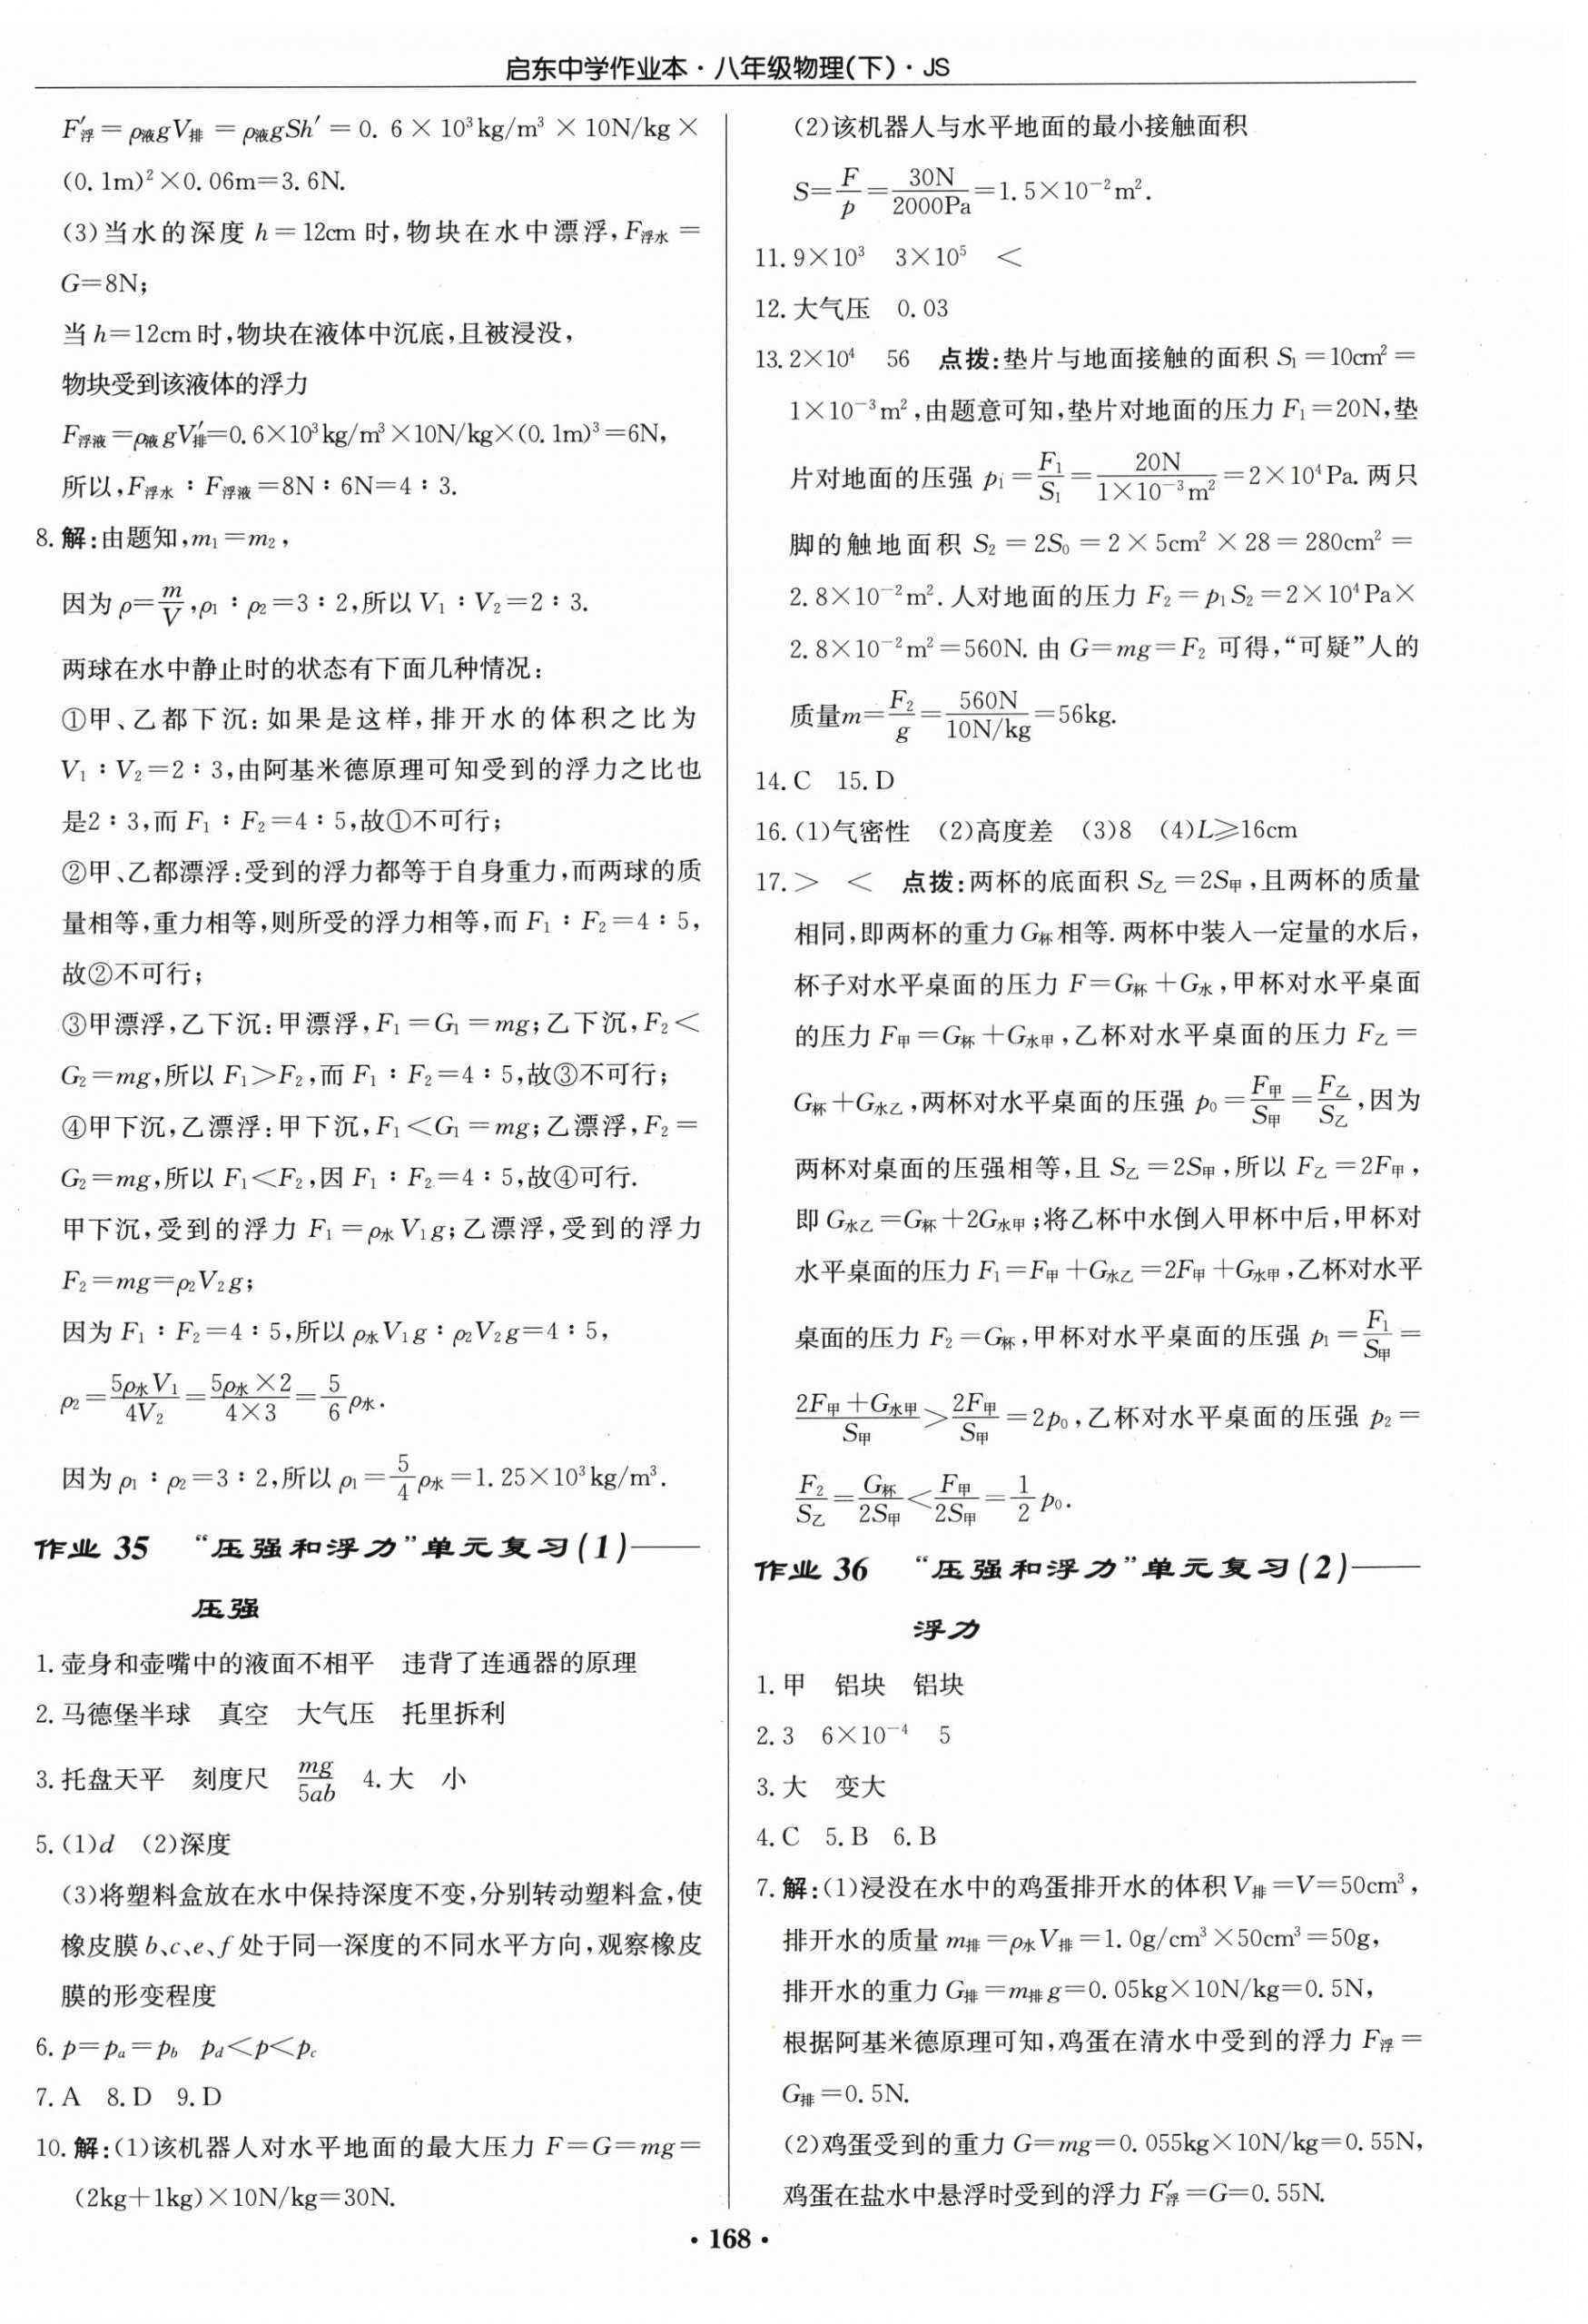 启东中学作业本·八年级物理(下)·JS
F′浮＝ρ液gV排＝ρ液gSh′＝0.6×10³kg/m³×10N/kg×
(0.1m)²×0.06m＝3.6N.
(3)当水的深度 h＝12cm 时,物块在水中漂浮,F浮水＝
G＝8N;
当 h＝12cm 时,物块在液体中沉底,且被浸没,
物块受到该液体的浮力
F浮液＝ρ液gV′排＝0.6×10³kg/m³×10N/kg×(0.1m)³＝6N,
所以,F浮水∶F浮液＝8N∶6N＝4∶3.
8.解:由题知,m₁＝m₂,
因为 ρ＝m/V,ρ₁∶ρ₂＝3∶2,所以 V₁∶V₂＝2∶3.
两球在水中静止时的状态有下面几种情况:
①甲、乙都下沉:如果是这样,排开水的体积之比为
V₁∶V₂＝2∶3,由阿基米德原理可知受到的浮力之比也
是2∶3,而 F₁∶F₂＝4∶5,故①不可行;
②甲、乙都漂浮:受到的浮力都等于自身重力,而两球的质
量相等,重力相等,则所受的浮力相等,而 F₁∶F₂＝4∶5,
故②不可行;
③甲漂浮,乙下沉:甲漂浮,F₁＝G₁＝mg;乙下沉,F₂＜
G₂＝mg,所以 F₁＞F₂,而 F₁∶F₂＝4∶5,故③不可行;
④甲下沉,乙漂浮:甲下沉,F₁＜G₁＝mg;乙漂浮,F₂＝
G₂＝mg,所以 F₁＜F₂,因 F₁∶F₂＝4∶5,故④可行.
甲下沉,受到的浮力 F₁＝ρ水V₁g;乙漂浮,受到的浮力
F₂＝mg＝ρ₂V₂g;
因为 F₁∶F₂＝4∶5,所以 ρ水V₁g∶ρ₂V₂g＝4∶5,
ρ₂＝5ρ水V₁/4V₂＝5ρ水×2/4×3＝5/6ρ水.
因为 ρ₁∶ρ₂＝3∶2,所以 ρ₁＝5/4ρ水＝1.25×10³kg/m³.
作业 35 “压强和浮力”单元复习(1)——
压强
1.壶身和壶嘴中的液面不相平 违背了连通器的原理
2.马德堡半球 真空 大气压 托里拆利
3.托盘天平 刻度尺 mg/5ab 4.大 小
5.(1)d (2)深度
(3)将塑料盒放在水中保持深度不变,分别转动塑料盒,使
橡皮膜 b、c、e、f 处于同一深度的不同水平方向,观察橡皮
膜的形变程度
6.p＝pₐ＝p_b p_d＜p＜p_c
7.A 8.D 9.D
10.解:(1)该机器人对水平地面的最大压力 F＝G＝mg＝
(2kg＋1kg)×10N/kg＝30N.
(2)该机器人与水平地面的最小接触面积
S＝F/p＝30N/2000Pa＝1.5×10⁻²m².
11.9×10³ 3×10⁵ ＜
12.大气压 0.03
13.2×10⁴ 56 点拨:垫片与地面接触的面积 S₁＝10cm²＝
1×10⁻³m²,由题意可知,垫片对地面的压力 F₁＝20N,垫
片对地面的压强 p₁＝F₁/S₁＝20N/1×10⁻³m²＝2×10⁴Pa.两只
脚的触地面积 S₂＝2S₀＝2×5cm²×28＝280cm²＝
2.8×10⁻²m².人对地面的压力 F₂＝p₁S₂＝2×10⁴Pa×
2.8×10⁻²m²＝560N.由 G＝mg＝F₂ 可得,“可疑”人的
质量m＝F₂/g＝560N/10N/kg＝56kg.
14.C 15.D
16.(1)气密性 (2)高度差 (3)8 (4)L≥16cm
17.＞ ＜ 点拨:两杯的底面积 S乙＝2S甲,且两杯的质量
相同,即两杯的重力 G杯相等.两杯中装入一定量的水后,
杯子对水平桌面的压力 F＝G杯＋G水,甲杯对水平桌面
的压力 F甲＝G杯＋G水甲,乙杯对水平桌面的压力 F乙＝
G杯＋G水乙,两杯对水平桌面的压强 p₀＝F甲/S甲＝F乙/S乙,因为
两杯对桌面的压强相等,且 S乙＝2S甲,所以 F乙＝2F甲,
即 G水乙＝G杯＋2G水甲;将乙杯中水倒入甲杯中后,甲杯对
水平桌面的压力 F₁＝F甲＋G水乙＝2F甲＋G水甲,乙杯对水平
桌面的压力 F₂＝G杯,甲杯对水平桌面的压强 p₁＝F₁/S甲＝
2F甲＋G水甲/S甲＞2F甲/S甲＝2p₀,乙杯对水平桌面的压强 p₂＝
F₂/S乙＝G杯/2S甲＜F甲/2S甲＝1/2p₀.
作业 36 “压强和浮力”单元复习(2)——
浮力
1.甲 铝块 铝块
2.3 6×10⁻⁴ 5
3.大 变大
4.C 5.B 6.B
7.解:(1)浸没在水中的鸡蛋排开水的体积 V排＝V＝50cm³,
排开水的质量 m排＝ρ水V排＝1.0g/cm³×50cm³＝50g,
排开水的重力 G排＝m排g＝0.05kg×10N/kg＝0.5N,
根据阿基米德原理可知,鸡蛋在清水中受到的浮力 F浮＝
G排＝0.5N.
(2)鸡蛋受到的重力 G＝mg＝0.055kg×10N/kg＝0.55N,
鸡蛋在盐水中悬浮时受到的浮力 F′浮＝G＝0.55N.
·168·